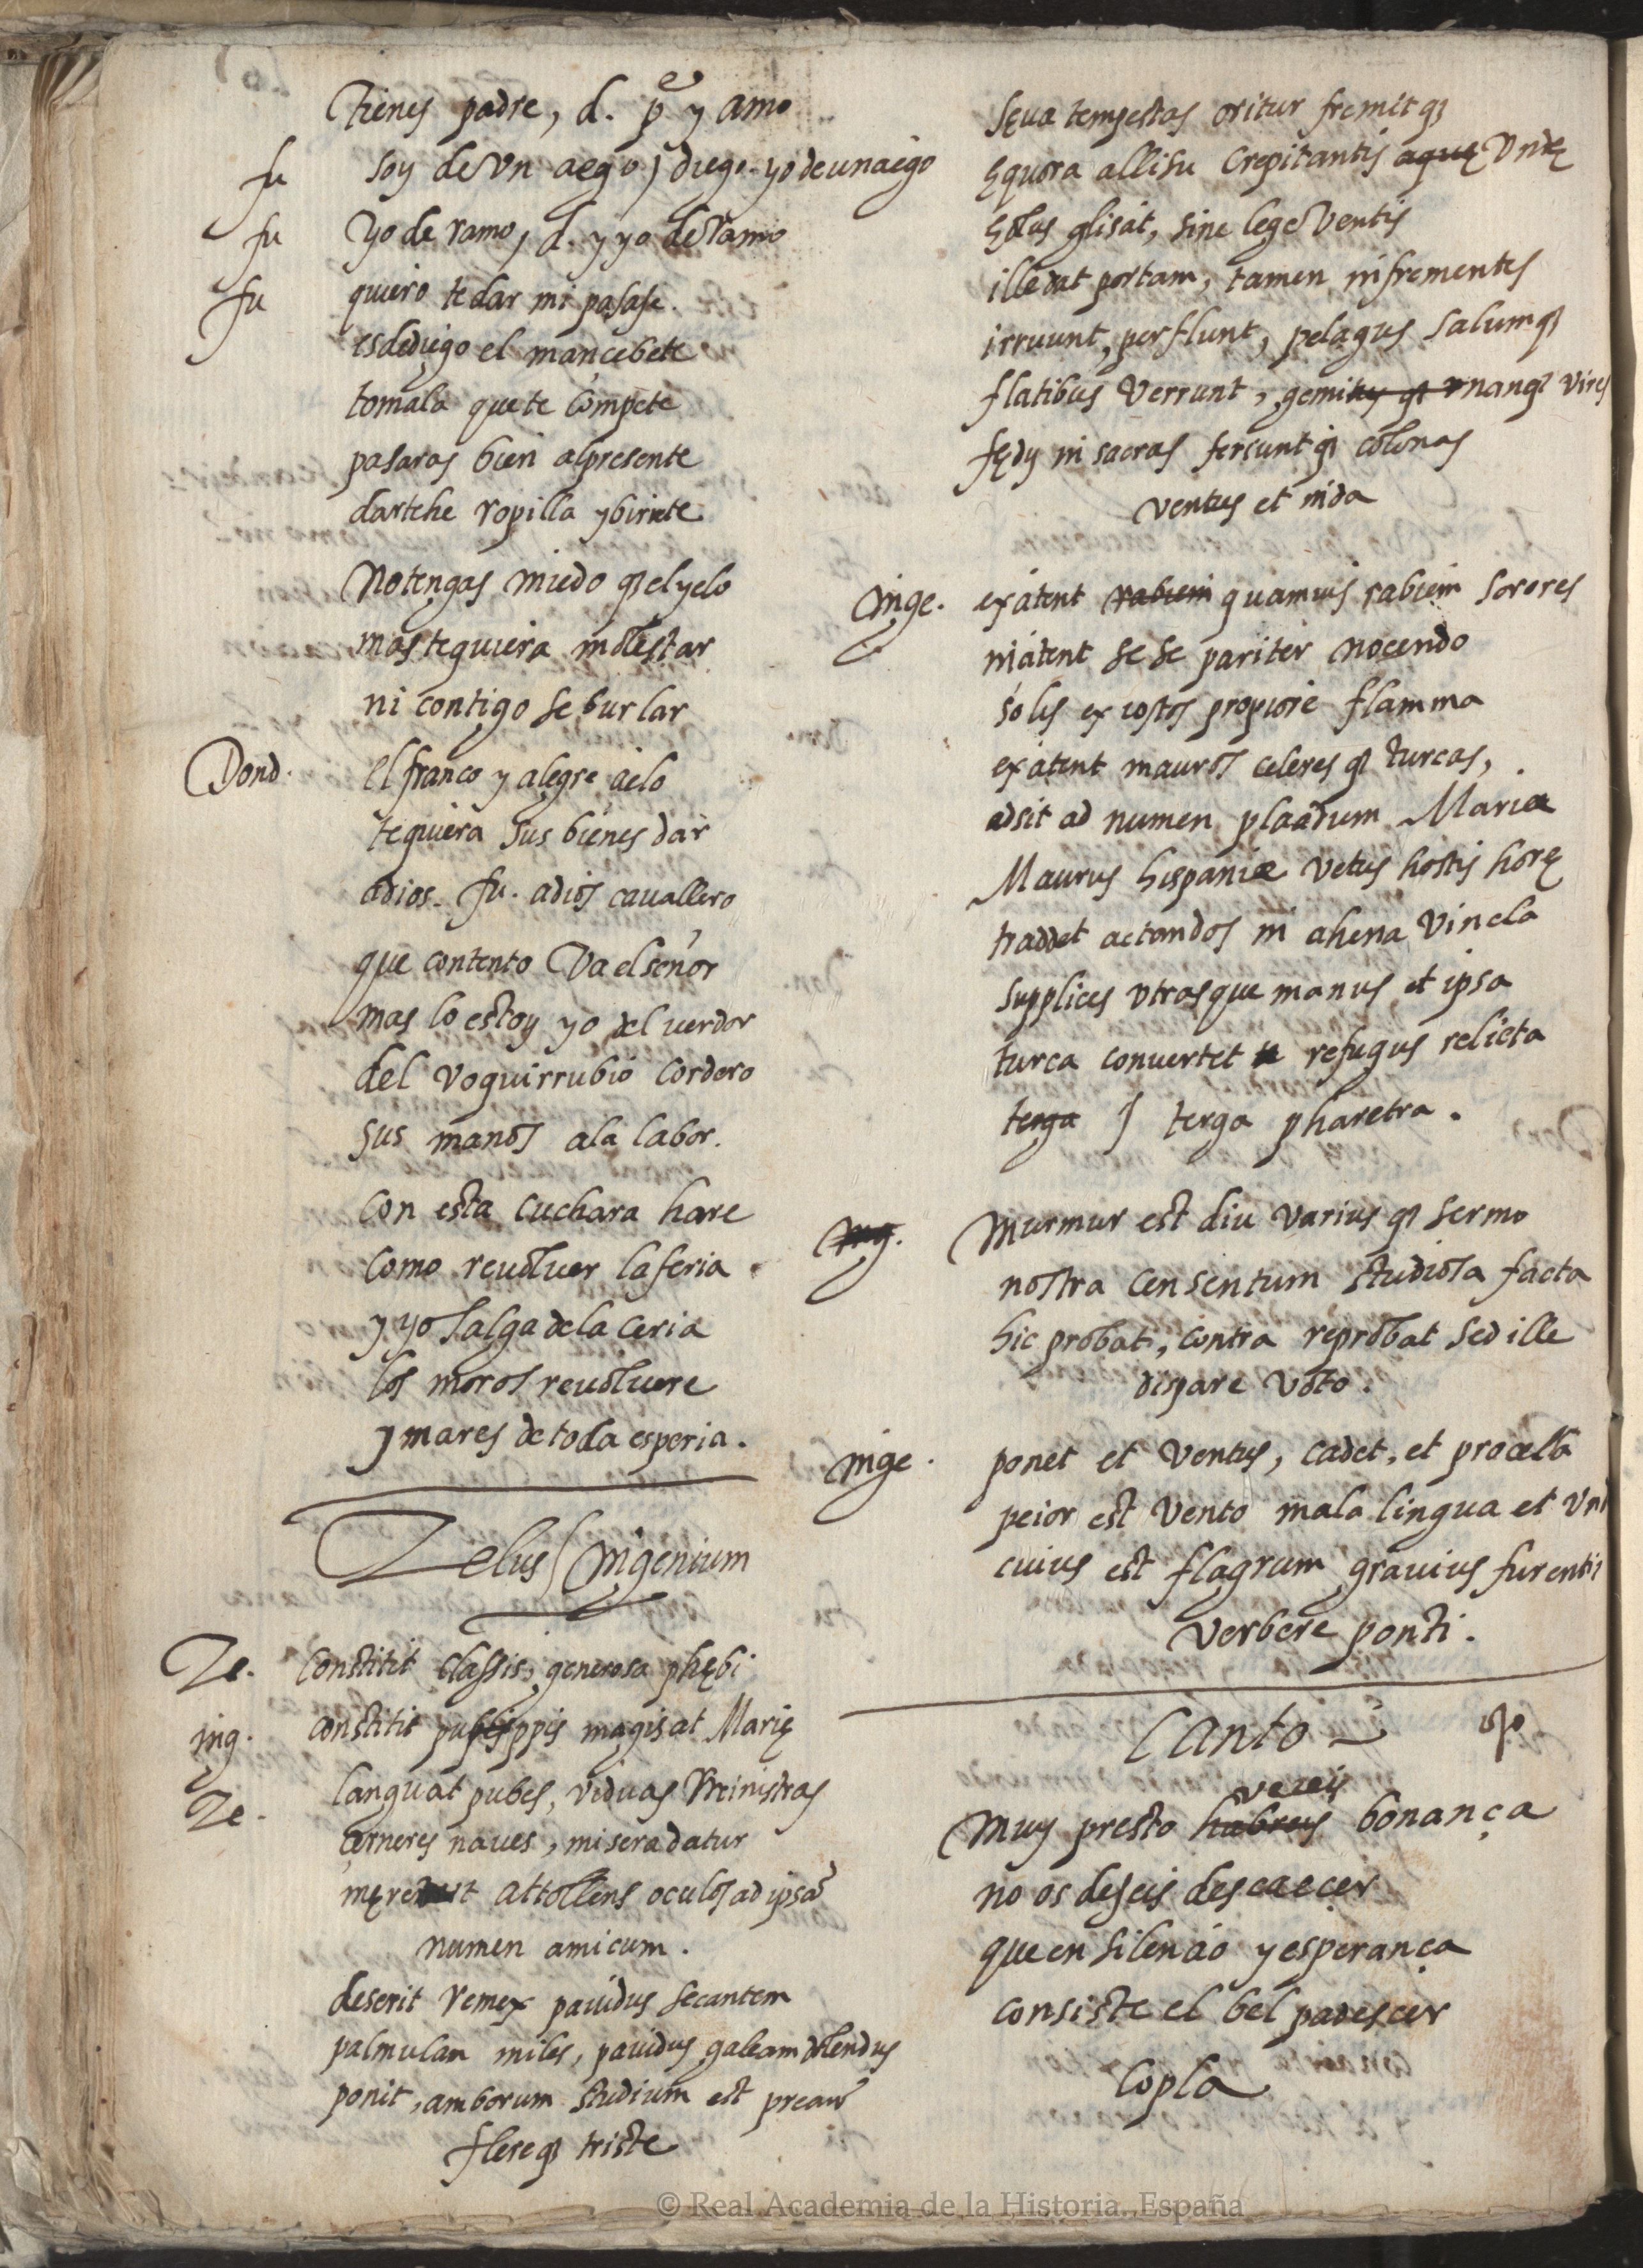 Tienes padre, d. pe y amo
fu soy de vn ciego, diego. yo de un ciego
fu yo de ramo, d. y yo de ramo
fu quiero te dar mi pasaje.
es de diego el mancebete
tomala que te compete
pasaras bien al presente
dartehe ropilla y birrete
No tengas miedo q el yelo
mas te quiera molestar
ni contigo se burlar
Dond. el franco y alegre cielo
te quiera sus bienes dar
adios. fu. adios cauallero
que contento va el señor
mas lo estoy yo del uerdor
del voquirrubio cordero
sus manos a la labor.
Con esta cuchara hare
como reuoluer la feria
y yo salga de la ceria
los moros reuoluere
y mares de toda esperia.
Zelus / Ingenium
Ze. Constitit classis, generosa phębi
ing. constitit puppis magis at Marię
Ze. languat pubes, viduas ministras
cerneres naues, misera datur
męret attollens oculos ad ipsā
numen amicum.
deserit remex pauidus secantem
palmulam miles, pauidus galeam dolendus
ponit, amborum studium est precari
flereq triste
Sęua tempestas oritur fremitq
ęquora allisu crepitantis aquę vndę
ęolus glisat, sine lege ventis
ille dat portam, tamen infrementes
irruunt, perflunt, pelagus salumq
flatibus verrunt, geminanq vires
fędy in sacras feriuntq colonas
ventus et nida
inge. exatent rabiem quamuis rabiem sorores
incitent se se pariter nocendo
solis exustos propiore flamma
excitent mauros celeres q turcas,
adsit ad numen placidum Mariæ
Maurus hispaniæ vetus hostis horę
traddet actandos in ahena vincla
supplices vtrasque manus et ipsa
turca conuertet refugus relicta
terga J terga pharetra.
ing. Murmur est diu varius q sermo
nostra censentum studiosa facta
hic probat, contra reprobat sed ille
dispare voto.
inge. ponet et ventus, cadet, et procella
peior est vento mala lingua et vni
cuius est flagrum grauius furenti
verbere ponti.
Canto
vereis
Muy presto habreis bonança
no os dejeis descaecer
que en silencio y esperança
consiste el bel padescer
Copla
© Real Academia de la Historia. España